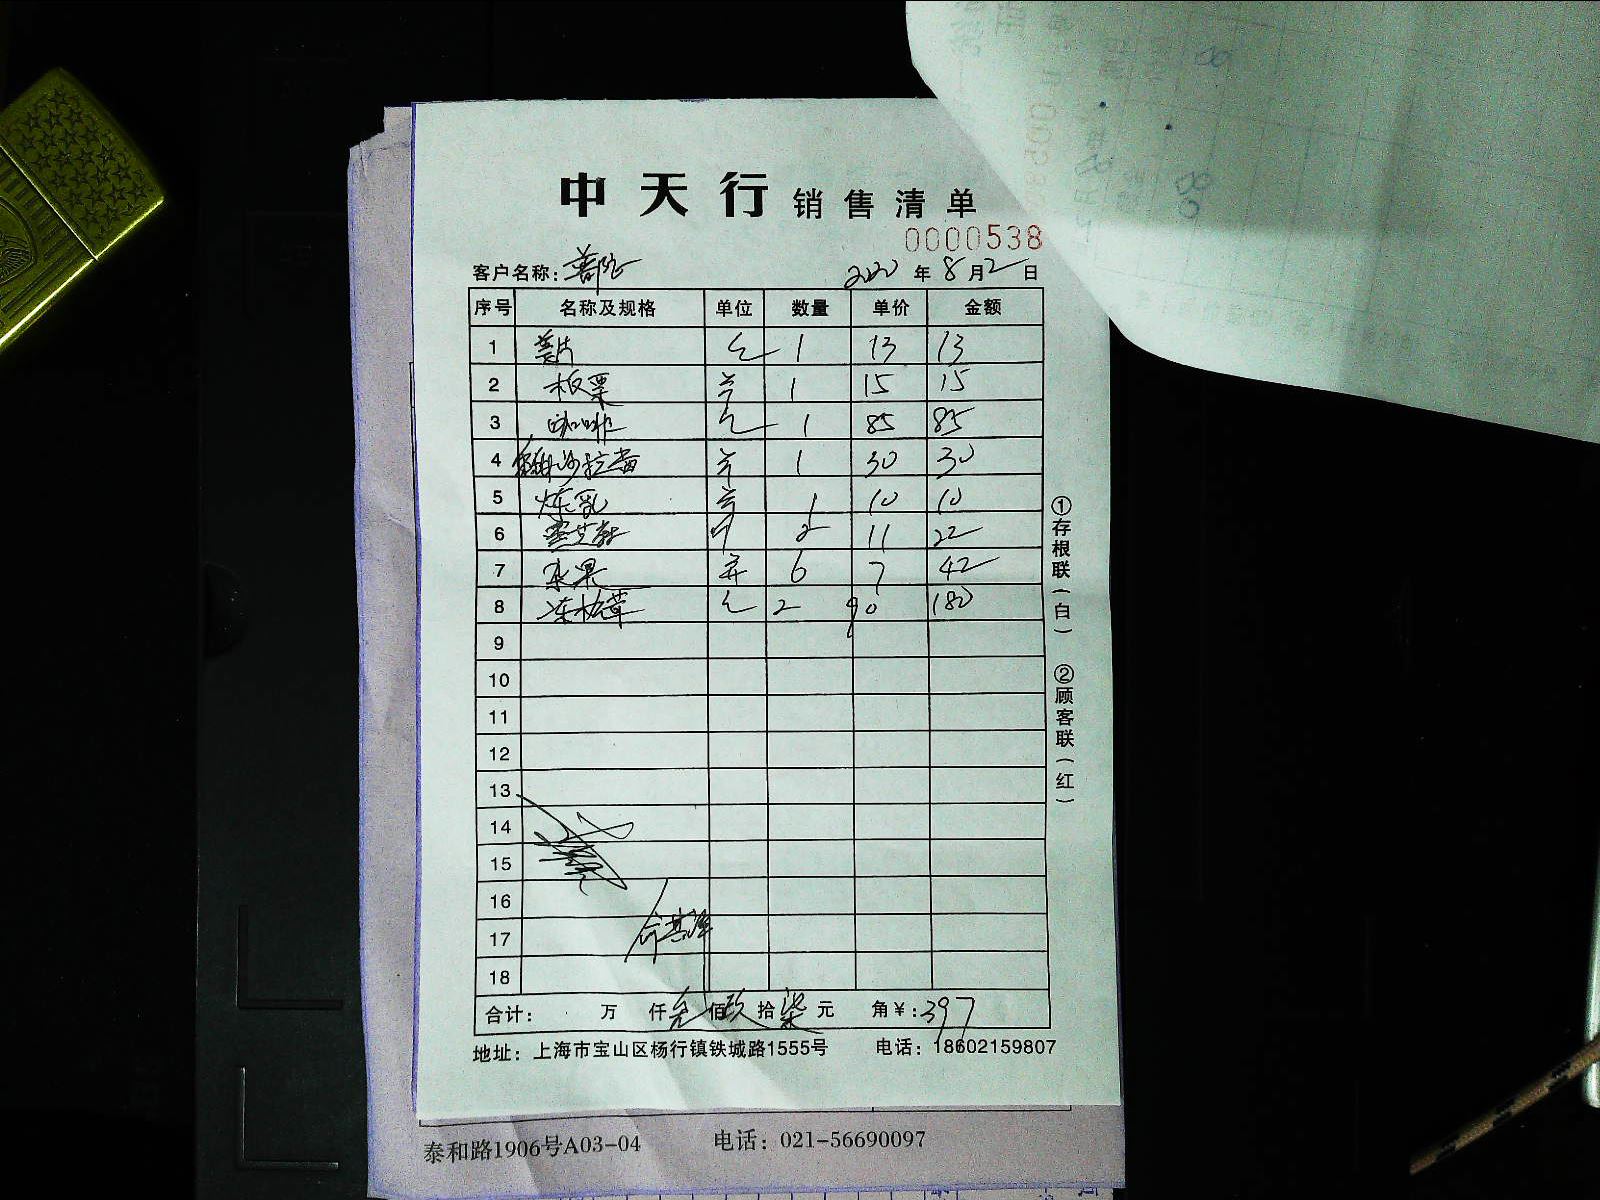 中天行 销售清单
0000538
客户名称: 普陀 2020 年 8 月 2 日
序号 名称及规格 单位 数量 单价 金额
1 姜片 包 1 13 13
2 板栗 1 15 15
3 咖啡 包 1 85 85
4 沙拉酱 1 30 30
5 炼乳 1 10 10
6 2 11 22
7 水果 6 7 42
8 包 2 90 180
9
10
11
12
13
14
15
16
17
18
合计: 万 仟 叁 佰 玖 拾 柒 元 角 ¥: 397
地址: 上海市宝山区杨行镇铁城路1555号 电话: 18602159807
①存根联(白) ②顾客联(红)
泰和路1906号A03-04 电话: 021-56690097